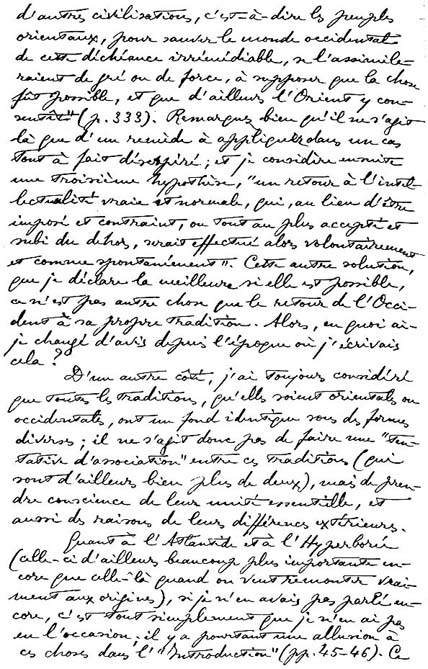 d'autres civilisations, c'est-à-dire les peuples
orientaux, pour sauver le monde occidental
de cette déchéance irrémédiable, se l'assimile-
raient de gré ou de force, à supposer que la chose
fût possible, et que d'ailleurs l'Orient y con-
sentît" (p. 333). Remarquez bien qu'il ne s'agit
là que d'un remède à appliquer dans un cas
tout à fait désespéré ; et je considère ensuite
une troisième hypothèse, "un retour à l'intel-
lectualité vraie et normale, qui, au lieu d'être
imposé et contraint, ou tout au plus accepté et
subi du dehors, serait effectué alors volontairement
et comme spontanément". Cette autre solution,
que je déclare la meilleure si elle est possible,
ce n'est pas autre chose que le retour de l'Occi-
dent à sa propre tradition. Alors, en quoi ai-
je changé d'avis depuis l'époque où j'écrivais
cela ?
D'un autre côté, j'ai toujours considéré
que toutes les traditions, qu'elles soient orientales ou
occidentales, ont un fond identique sous des formes
diverses ; il ne s'agit donc pas de faire une "ten-
tative d'association" entre ces traditions (qui
sont d'ailleurs bien plus de deux), mais de pren-
dre conscience de leur unité essentielle, et
aussi des raisons de leurs différences extérieures.
Quant à l'Atlantide et à l'Hyperborée
(celle-ci d'ailleurs beaucoup plus importante en-
core que celle-là quand on veut remonter vrai-
ment aux origines), si je n'en avais pas parlé en-
core, c'est tout simplement que je n'en ai pas
eu l'occasion ; il y a pourtant une allusion à
ces choses dans l'"Introduction" (pp. 45-46). Ce